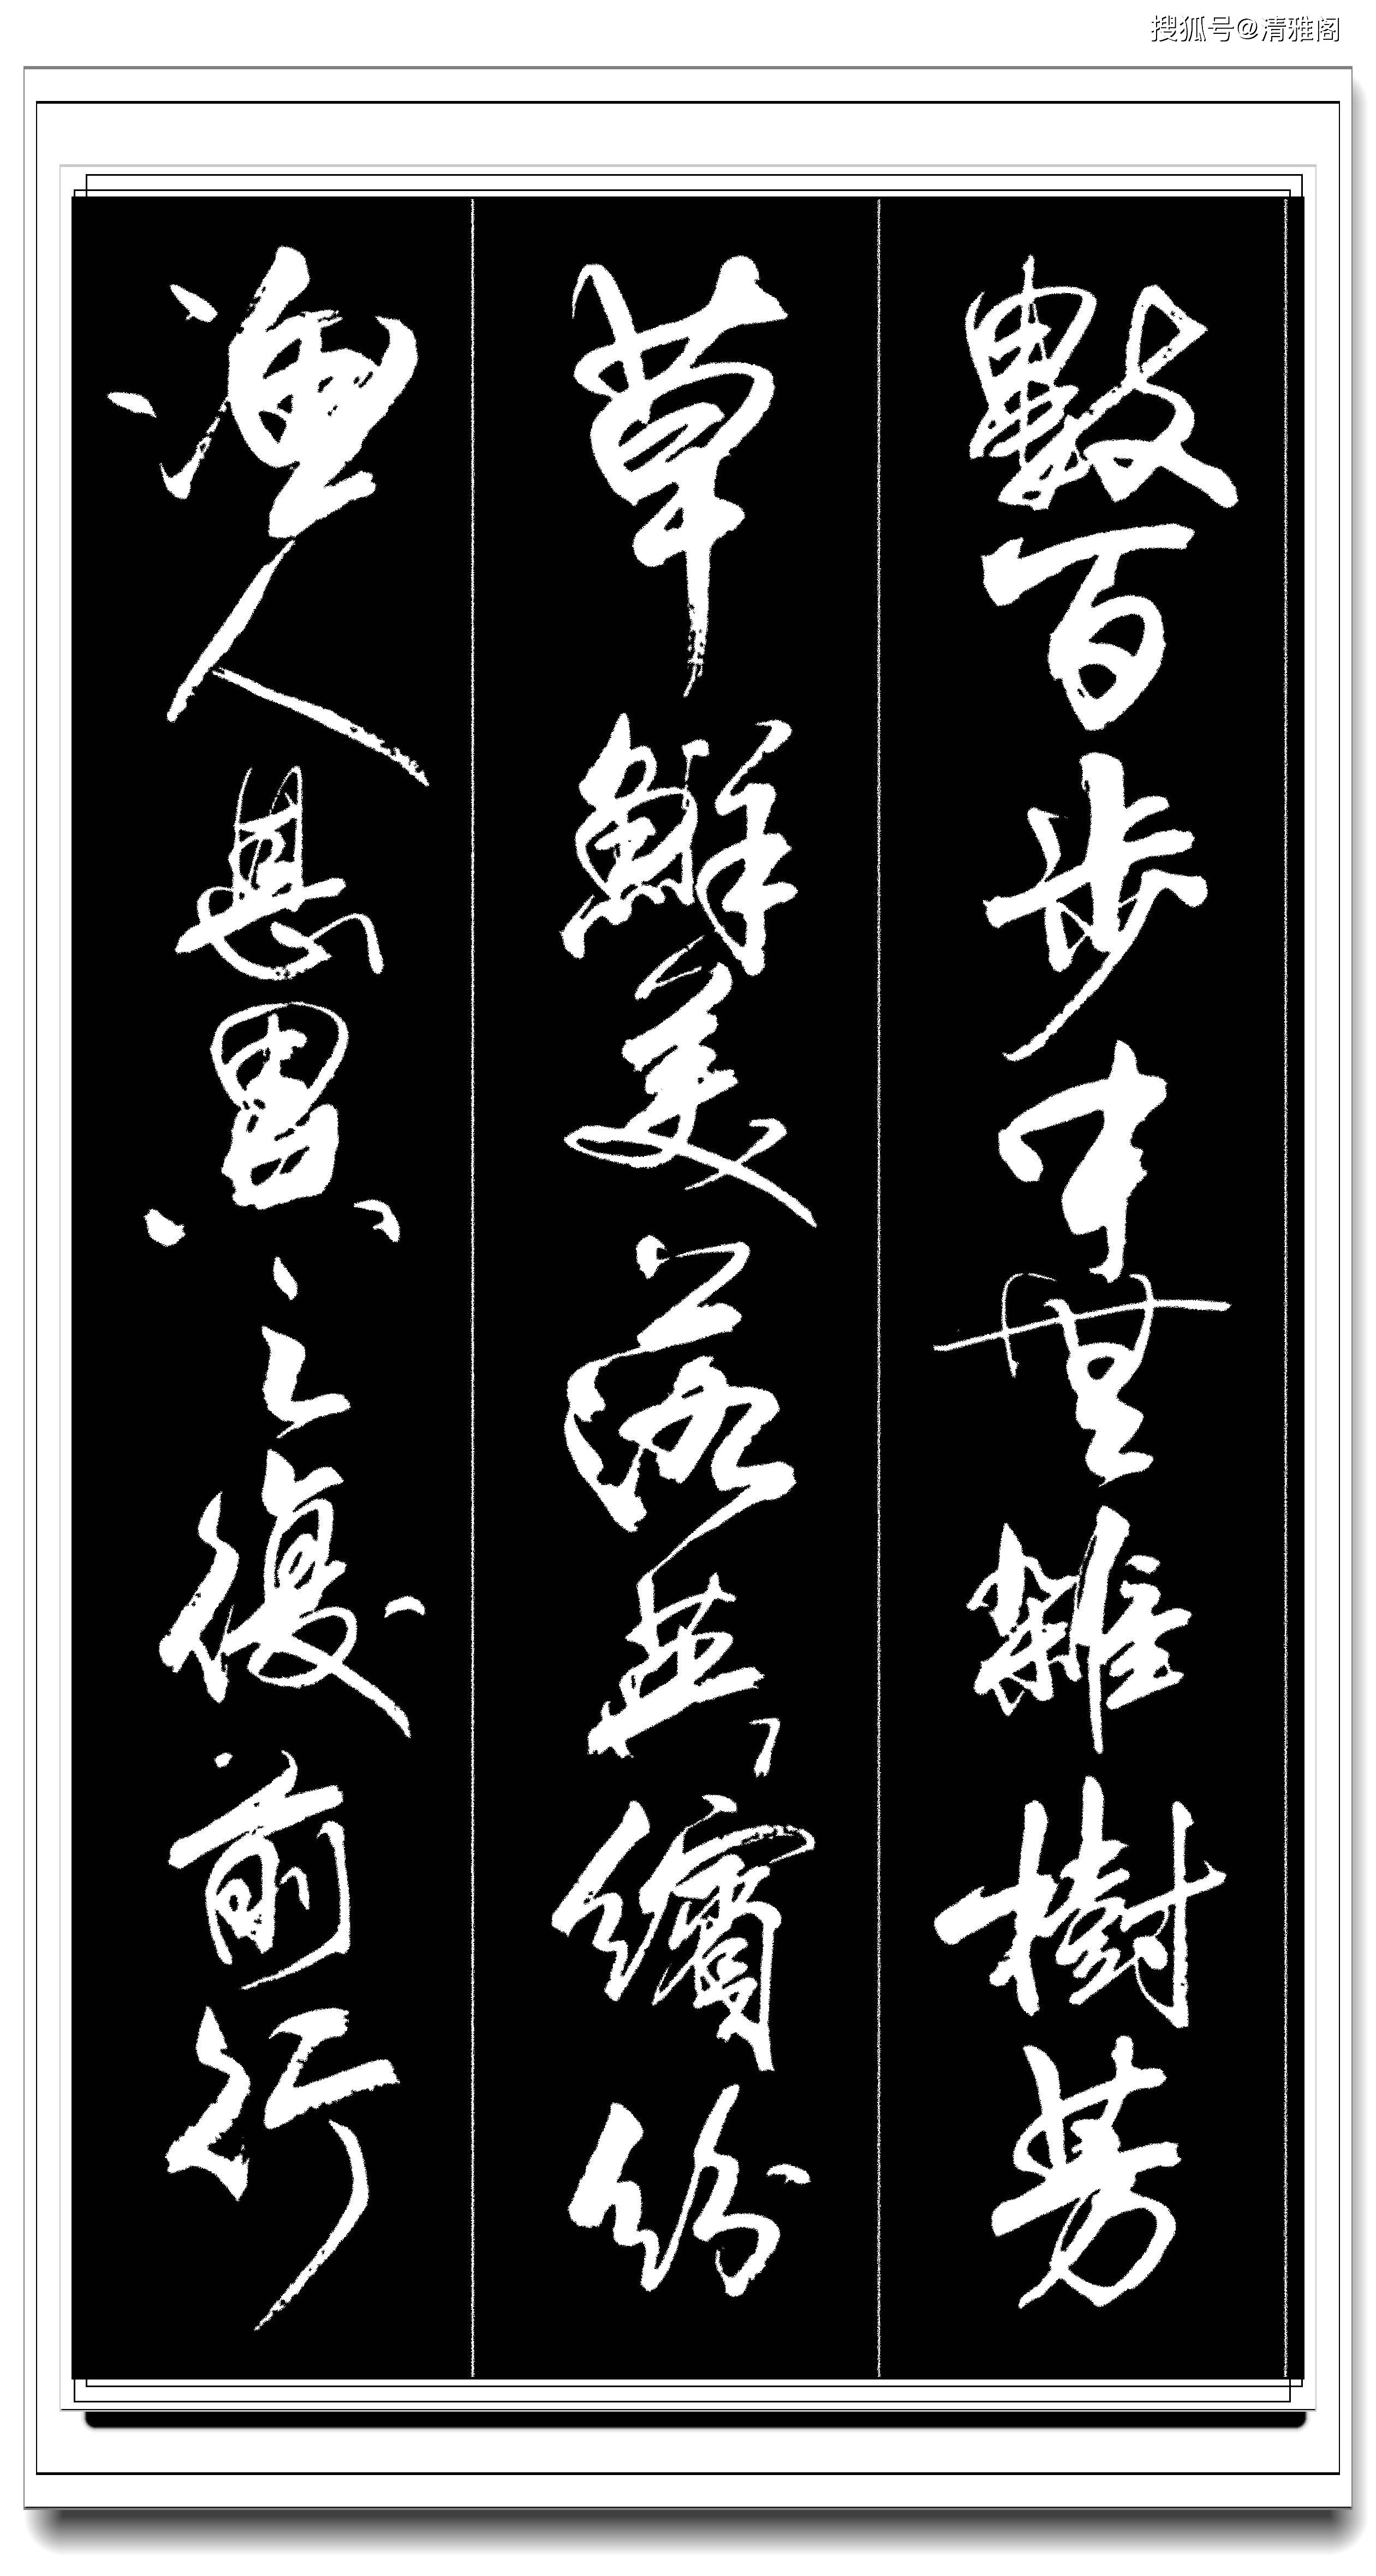 搜狐号@清雅阁
數百步中無雜樹芳
草鮮美落英繽紛
漁人甚異之復前行